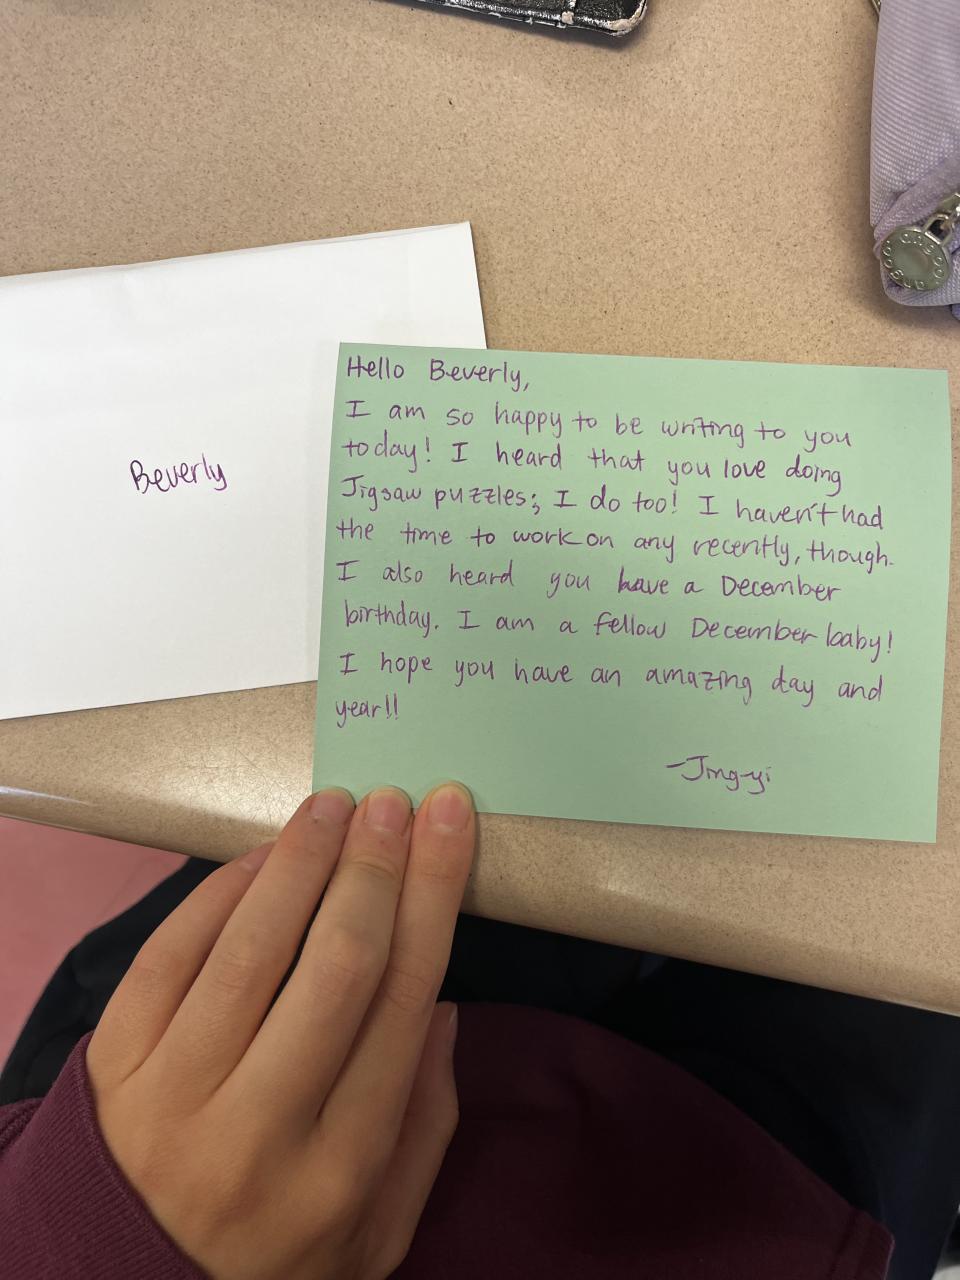 Beverly
Hello Beverly,
I am so happy to be writing to you
today! I heard that you love doing
Jigsaw puzzles; I do too! I haven't had
the time to work on any recently, though.
I also heard you have a December
birthday. I am a fellow December baby!
I hope you have an amazing day and
year!!
-Jing-yi